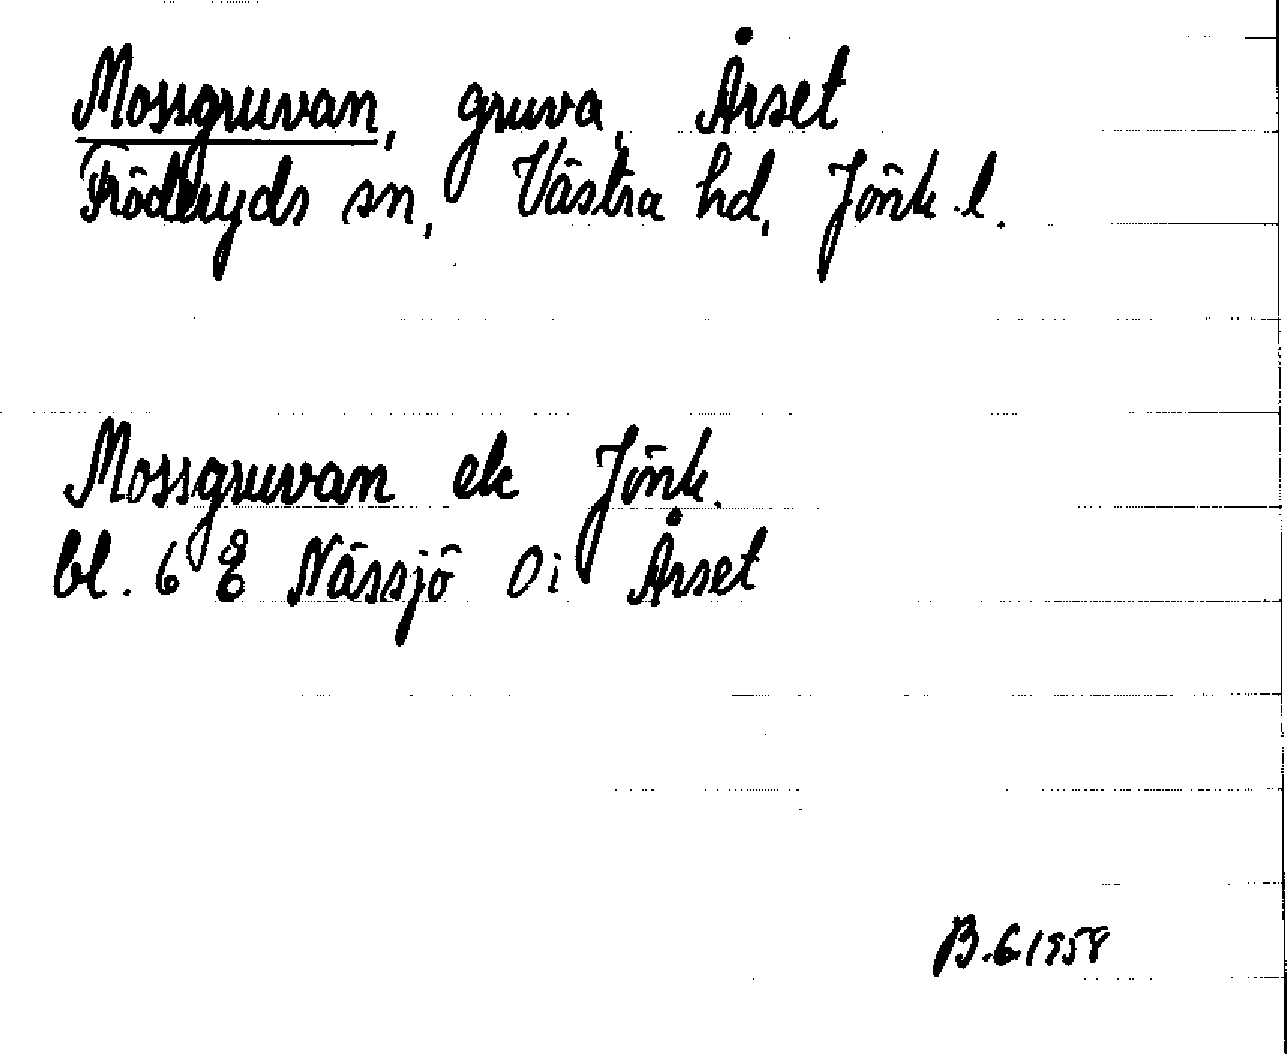 Mossgruvan, gruva, Årset
Fröderyds sn, Västra hd, Jönk.l.
Mossgruvan ek Jönk.
bl. 6 E Nässjö Oi Årset
B.G 1958